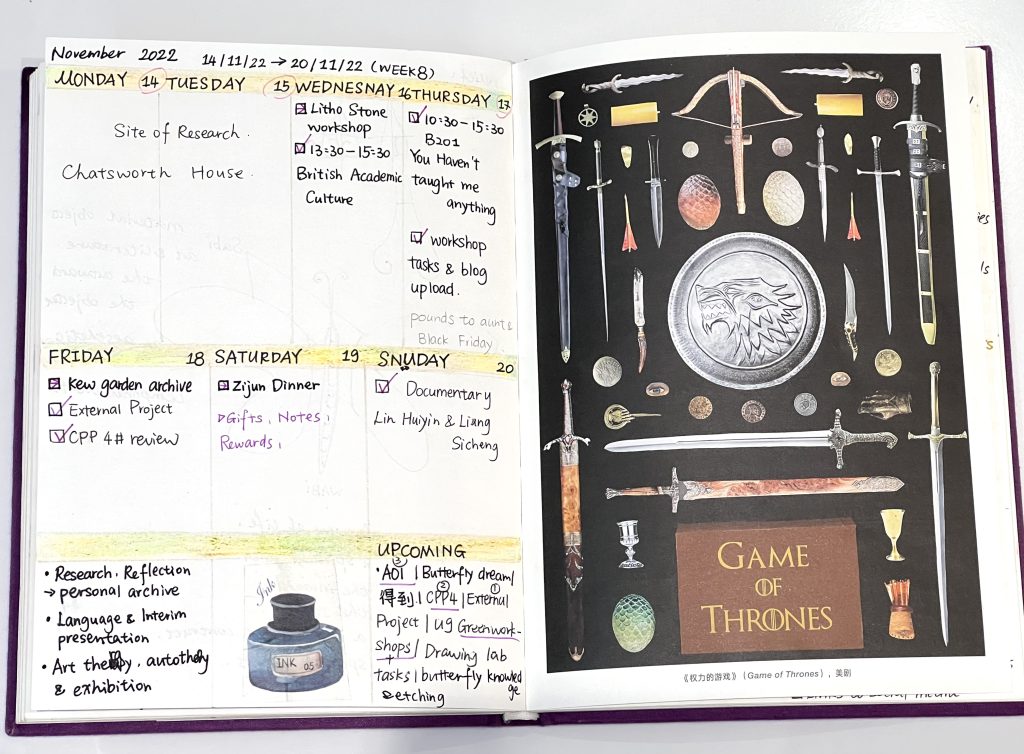 November 2022 14/11/22 → 20/11/22 (WEEK8)
MONDAY 14 TUESDAY 15 WEDNESNAY 16 THURSDAY 17
Site of Research.
Chatsworth House.
Litho Stone
workshop
13:30-15:30
British Academic
Culture
10:30-15:30
B201
You Haven't
taught me
anything
workshop
tasks & blog
upload.
pounds to aunt &
Black Friday
FRIDAY 18 SATURDAY 19 SNUDAY 20
Kew garden archive
External Project
CPP 4# review
Zijun Dinner
Gifts, Notes,
Rewards,
Documentary
Lin Huiyin & Liang
Sicheng
• Research, Reflection
→ personal archive
• Language & Interim
presentation
• Art
& exhibition
Ink
INK 05
UPCOMING
③
• A01 | Butterfly dream |
② ①
得到 | CPP4 | External
Project | Ug Greenwork-
shops | Drawing lab
+
tasks | butterfly knowled
ge
& etching
GAME
OF
THRONES
《权力的游戏》(Game of Thrones),美剧